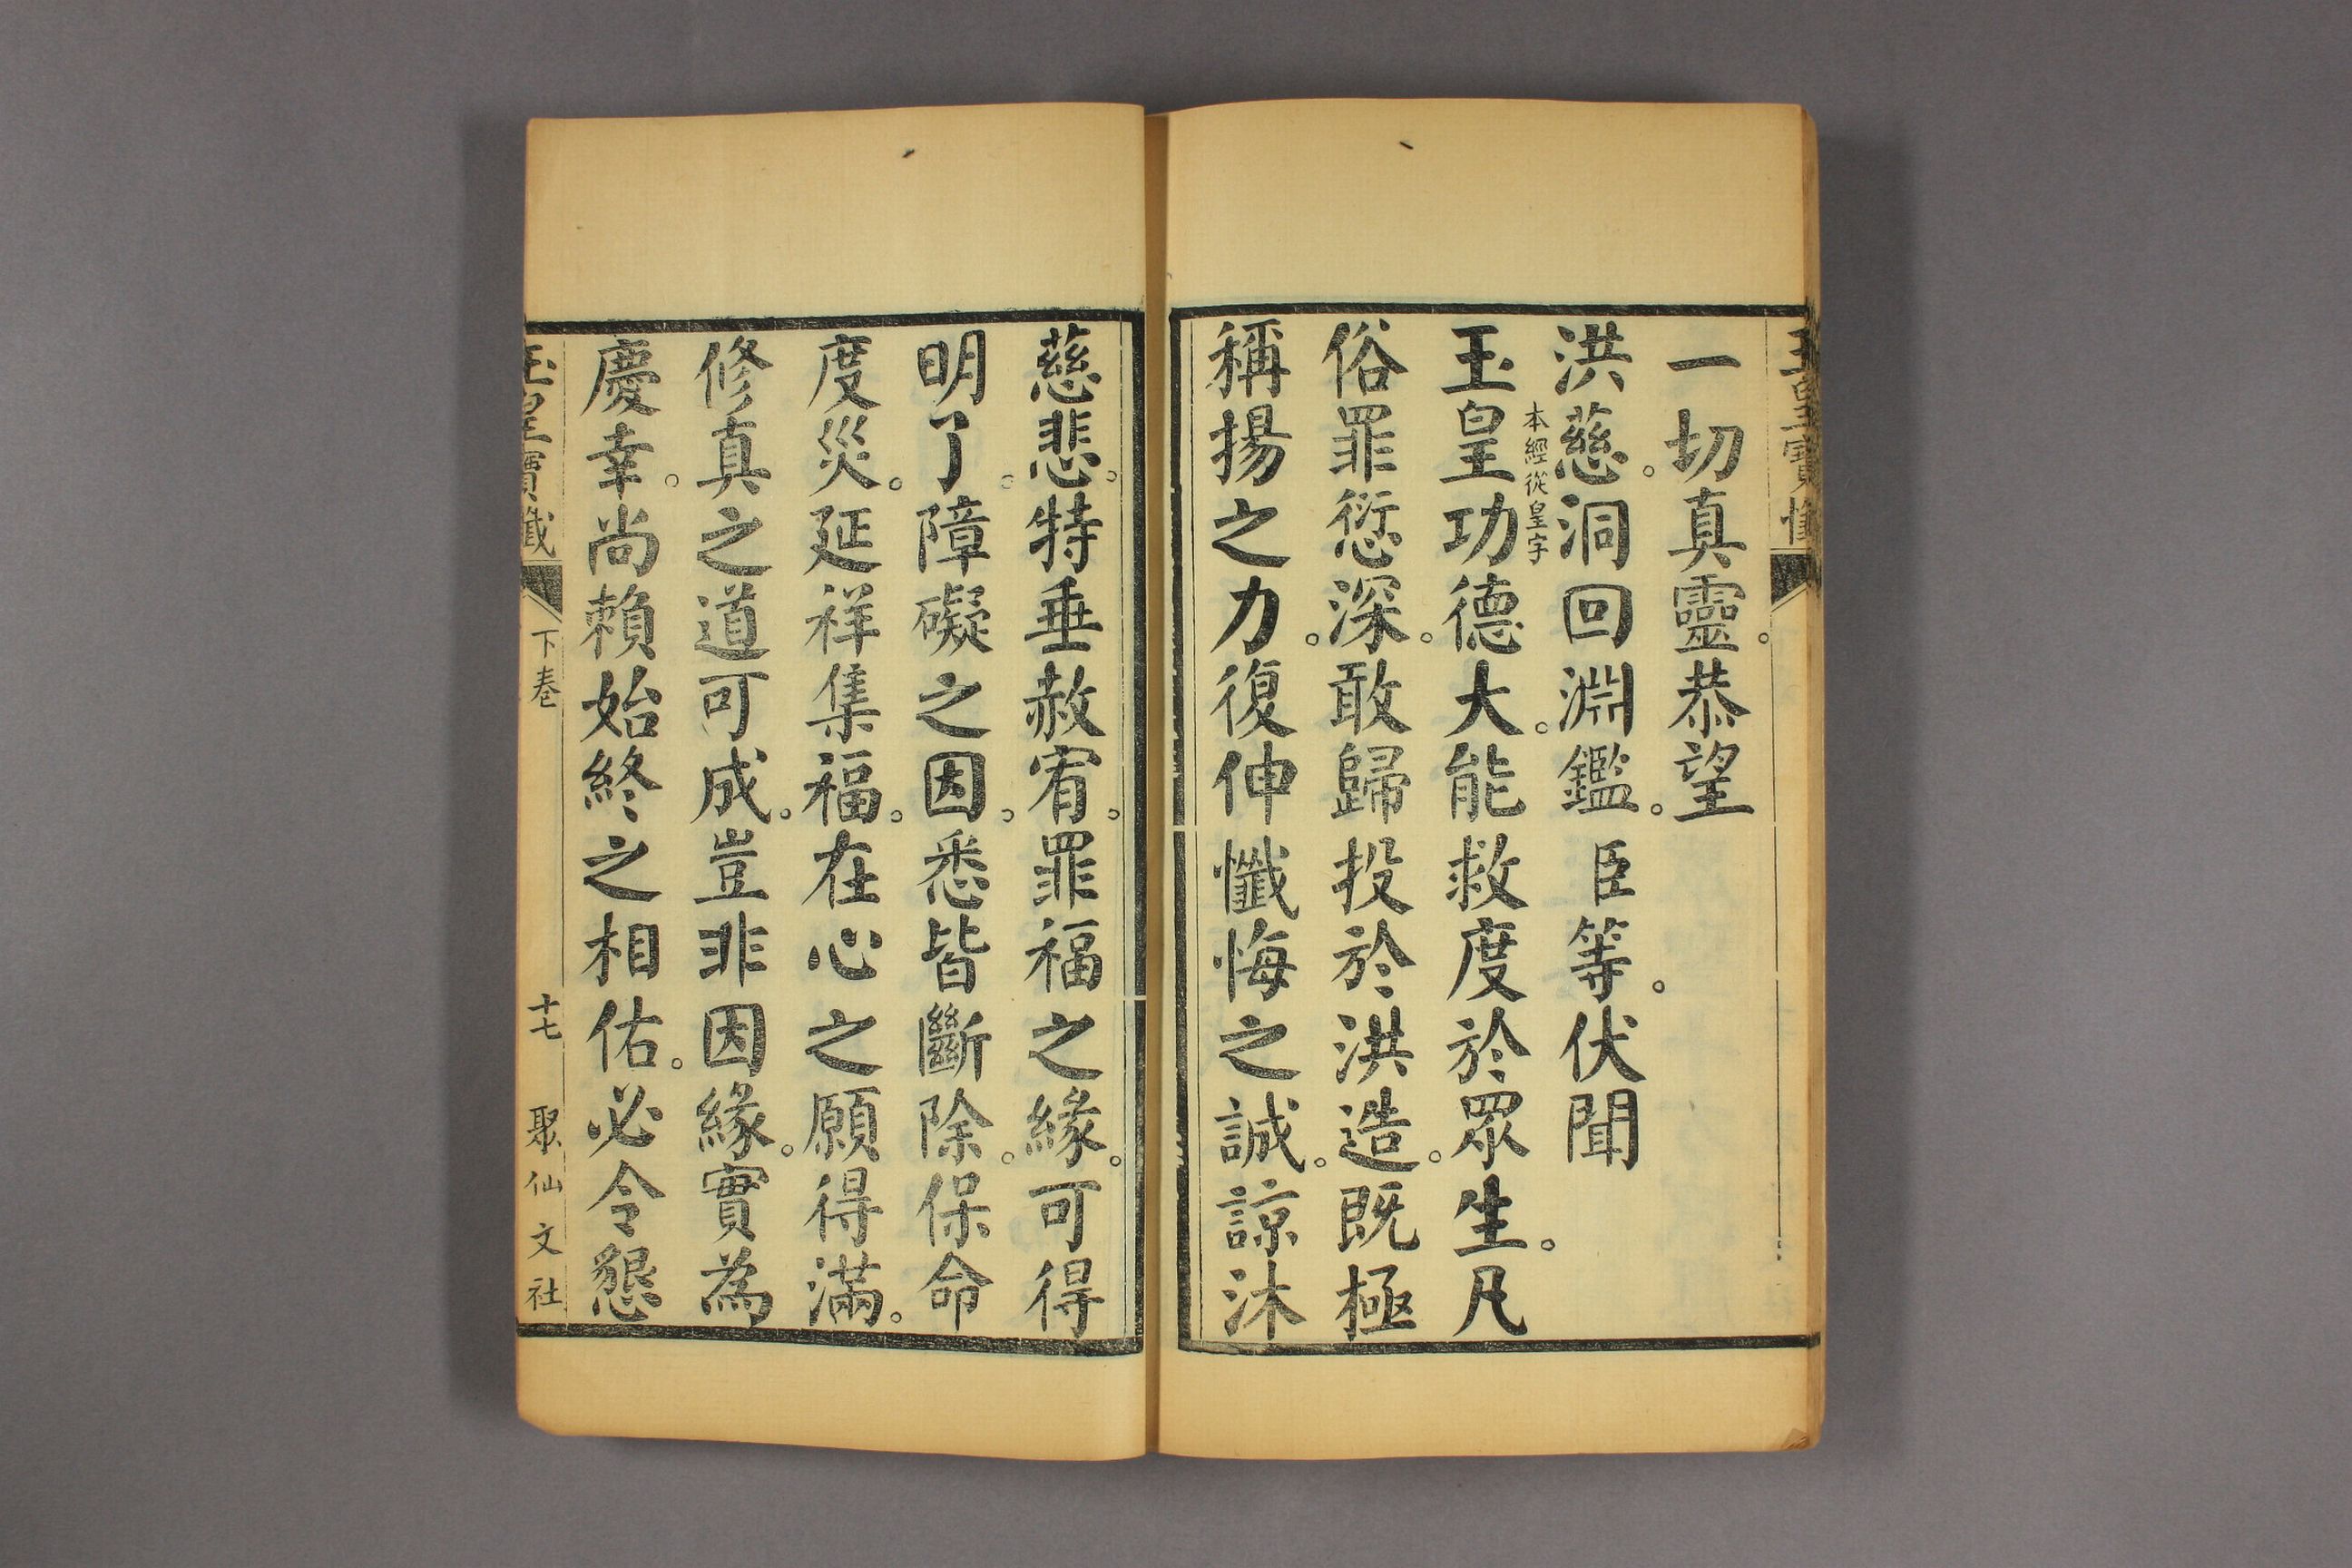 玉皇寶懺
一切真靈。恭望
洪慈。洞回淵鑑。臣等。伏聞
本經從皇字
玉皇功德大。能救度於眾生。凡
俗罪愆深。敢歸投於洪造。既極
稱揚之力。復伸懺悔之誠。諒沐
慈悲。特垂赦宥。罪福之緣。可得
明了。障礙之因。悉皆斷除。保命
度災。延祥集福。在心之願得滿。
修真之道可成。豈非因緣。實為
慶幸。尚賴始終之相佑。必令懇
玉皇寶懺 下卷 十七 聚仙文社